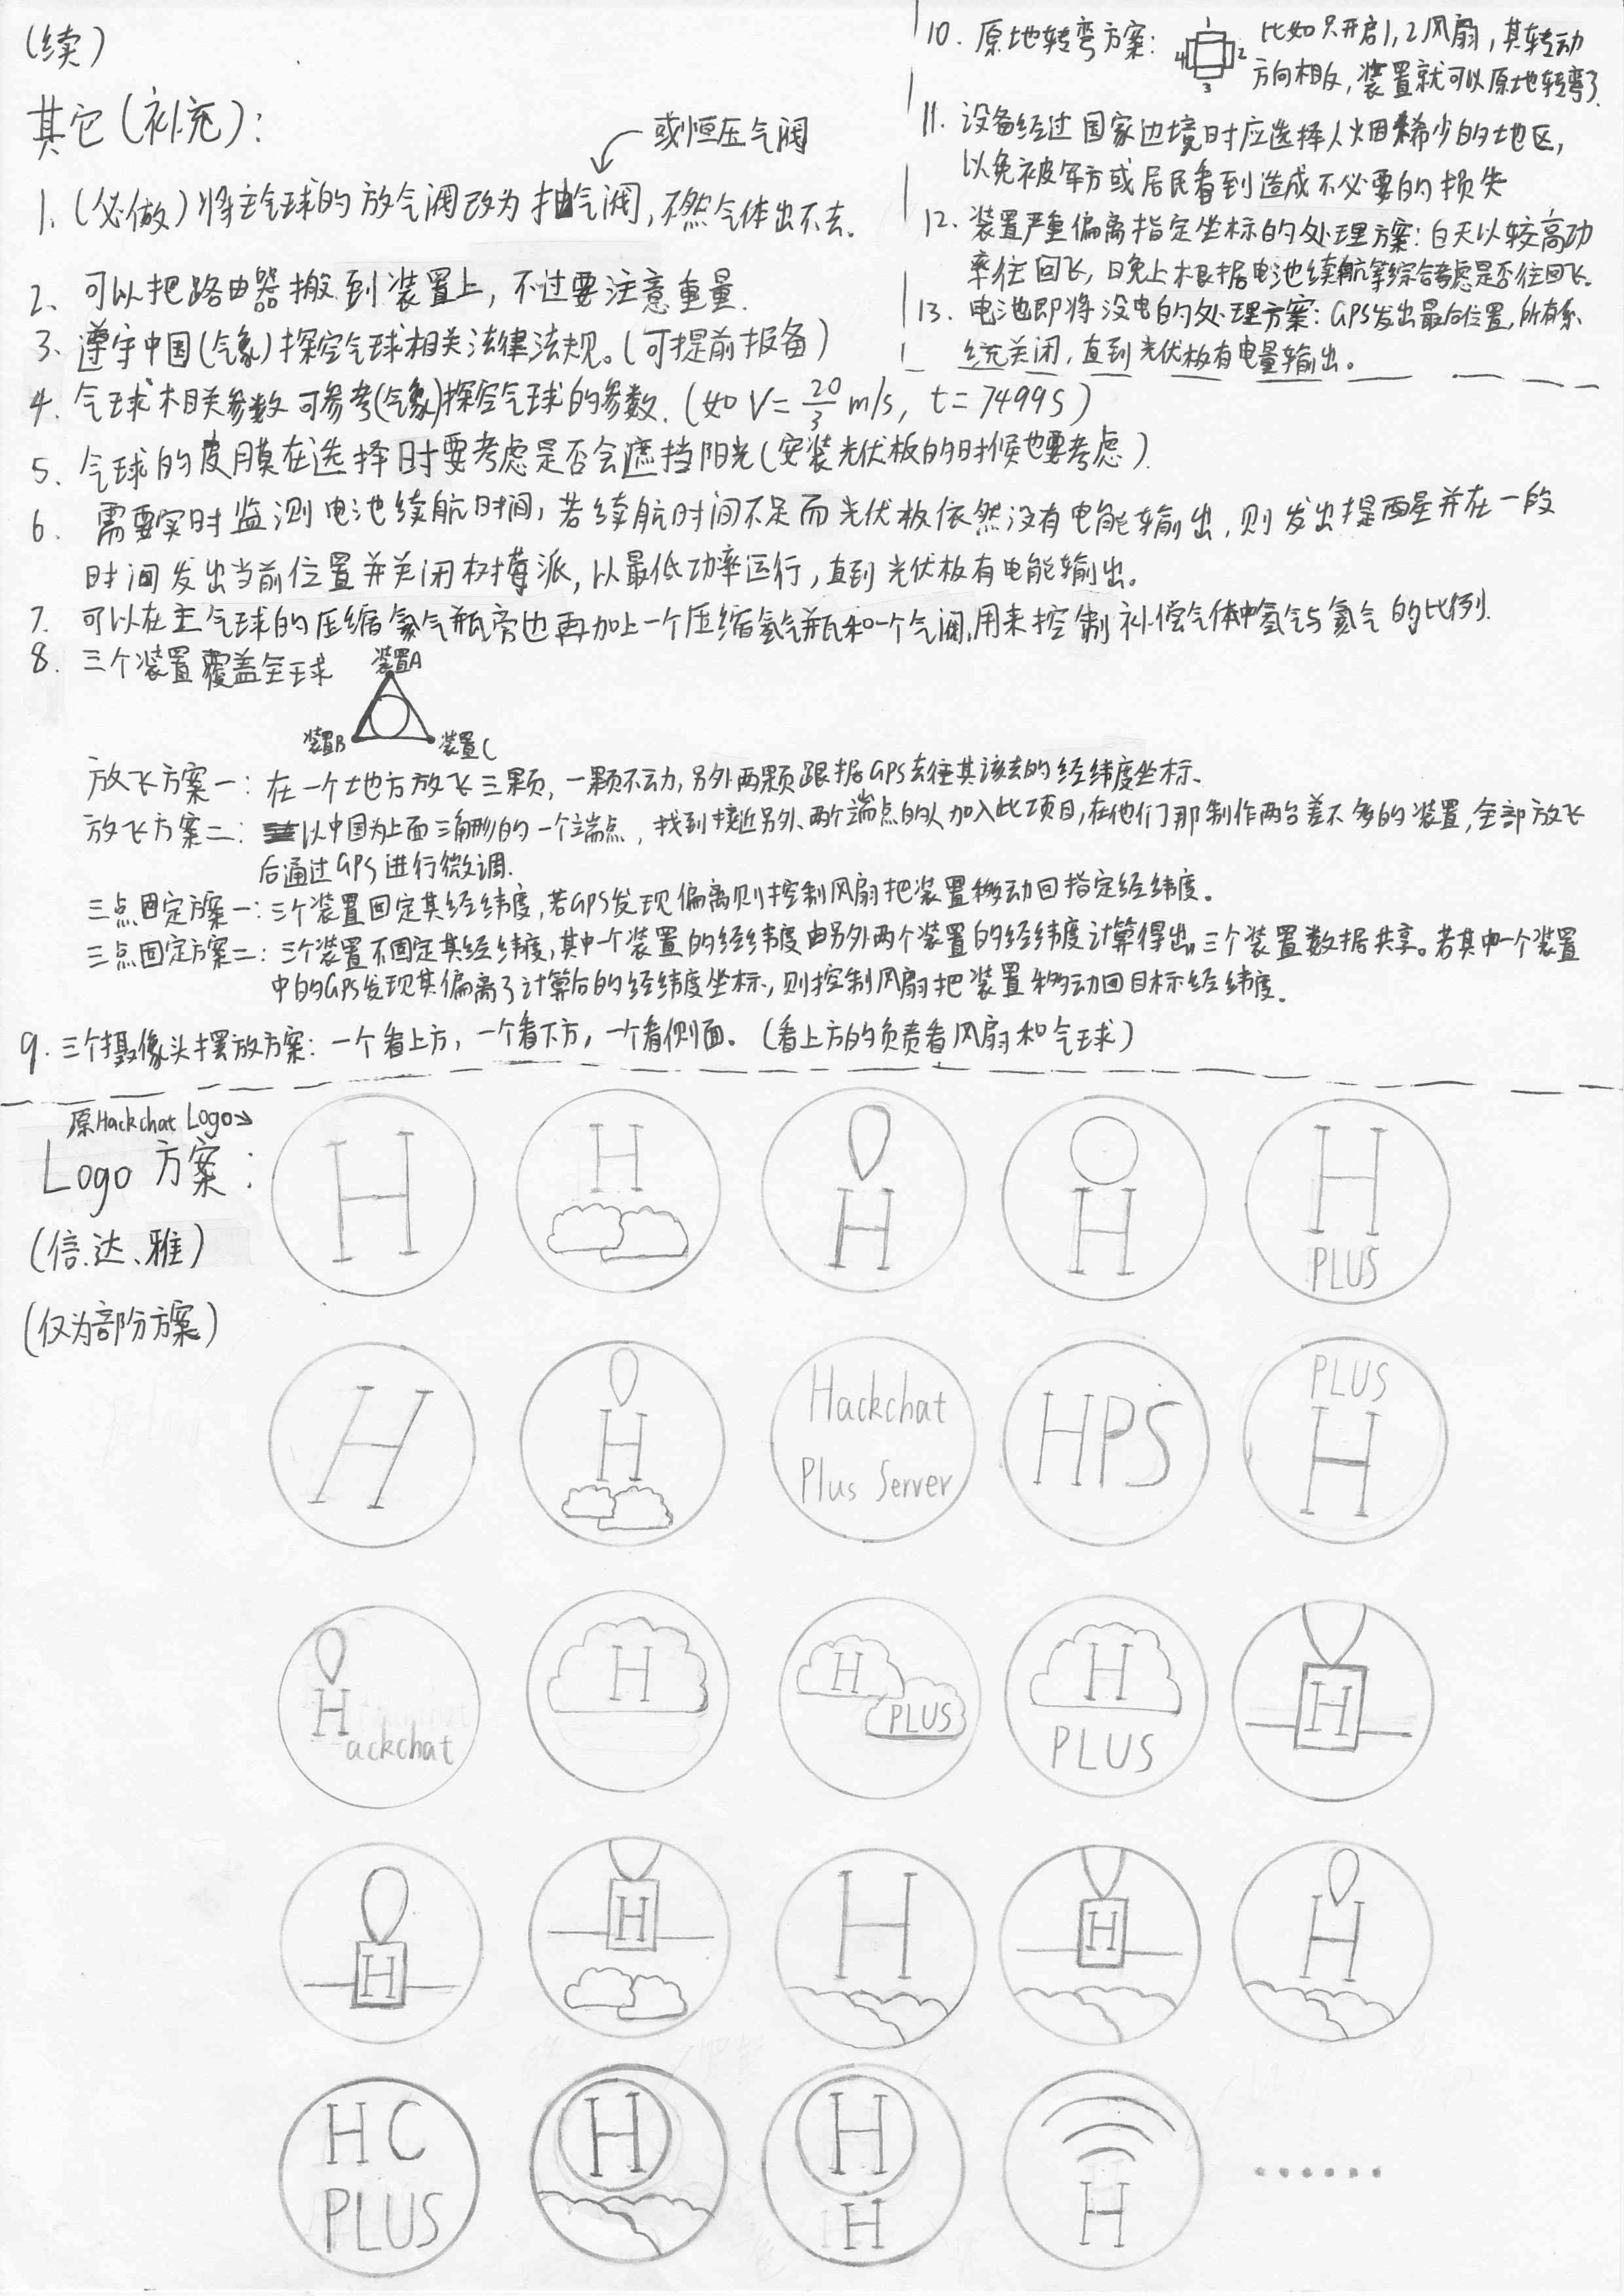 (续)
其它(补充):
或恒压气阀
1. (必做) 将主气球的放气阀改为抽气阀, 不然气体出不去.
2、可以把路由器搬到装置上, 不过要注意重量.
3、遵守中国(气象)探空气球相关法律法规。(可提前报备)
4. 气球相关参数可参考(气象)探空气球的参数. (如 V = 20/3 m/s, t = 7499s)
5、气球的皮膜在选择时要考虑是否会遮挡阳光(安装光伏板的时候也要考虑).
6、需要实时监测电池续航时间, 若续航时间不足而光伏板依然没有电能输出, 则发出提醒并在一段
时间发出当前位置并关闭树莓派, 以最低功率运行, 直到光伏板有电能输出。
7. 可以在主气球的压缩氦气瓶旁也再加上一个压缩氢气瓶和一个气阀, 用来控制补偿气体中氢气与氦气的比例.
8. 三个装置覆盖全球
装置A
装置B
装置C
放飞方案一: 在一个地方放飞三颗, 一颗不动, 另外两颗跟据GPS去往其该去的经纬度坐标、
放飞方案二: 以中国为上面三角形的一个端点, 找到接近另外两个端点的人加入此项目, 在他们那制作两台差不多的装置, 全部放飞
后通过GPS进行微调.
三点固定方案一: 三个装置固定其经纬度, 若GPS发现偏离则控制风扇把装置移动回指定经纬度。
三点固定方案二: 三个装置不固定其经纬度, 其中一个装置的经纬度由另外两个装置的经纬度计算得出, 三个装置数据共享。若其中一个装置
中的GPS发现其偏离了计算后的经纬度坐标, 则控制风扇把装置移动回目标经纬度。
9. 三个摄像头摆放方案: 一个看上方, 一个看下方, 一个看侧面。(看上方的负责看风扇和气球)
10. 原地转弯方案:
1
4 2
3
比如只开启1, 2风扇, 其转动
方向相反, 装置就可以原地转弯了.
11. 设备经过国家边境时应选择人烟稀少的地区,
以免被军方或居民看到造成不必要的损失
12. 装置严重偏离指定坐标的处理方案: 白天以较高功
率往回飞, 晚上根据电池续航等综合考虑是否往回飞.
13. 电池即将没电的处理方案: GPS发出最后位置, 所有系
统关闭, 直到光伏板有电量输出。
原Hackchat Logo→
Logo 方案:
(信、达、雅)
(仅为部份方案)
H
H
H
H
H
PLUS
H
H
Hackchat
Plus Server
HPS
PLUS
H
H
ackchat
H
H
PLUS
H
PLUS
H
H
H
H
H
H
HC
PLUS
H
H
H
H
······